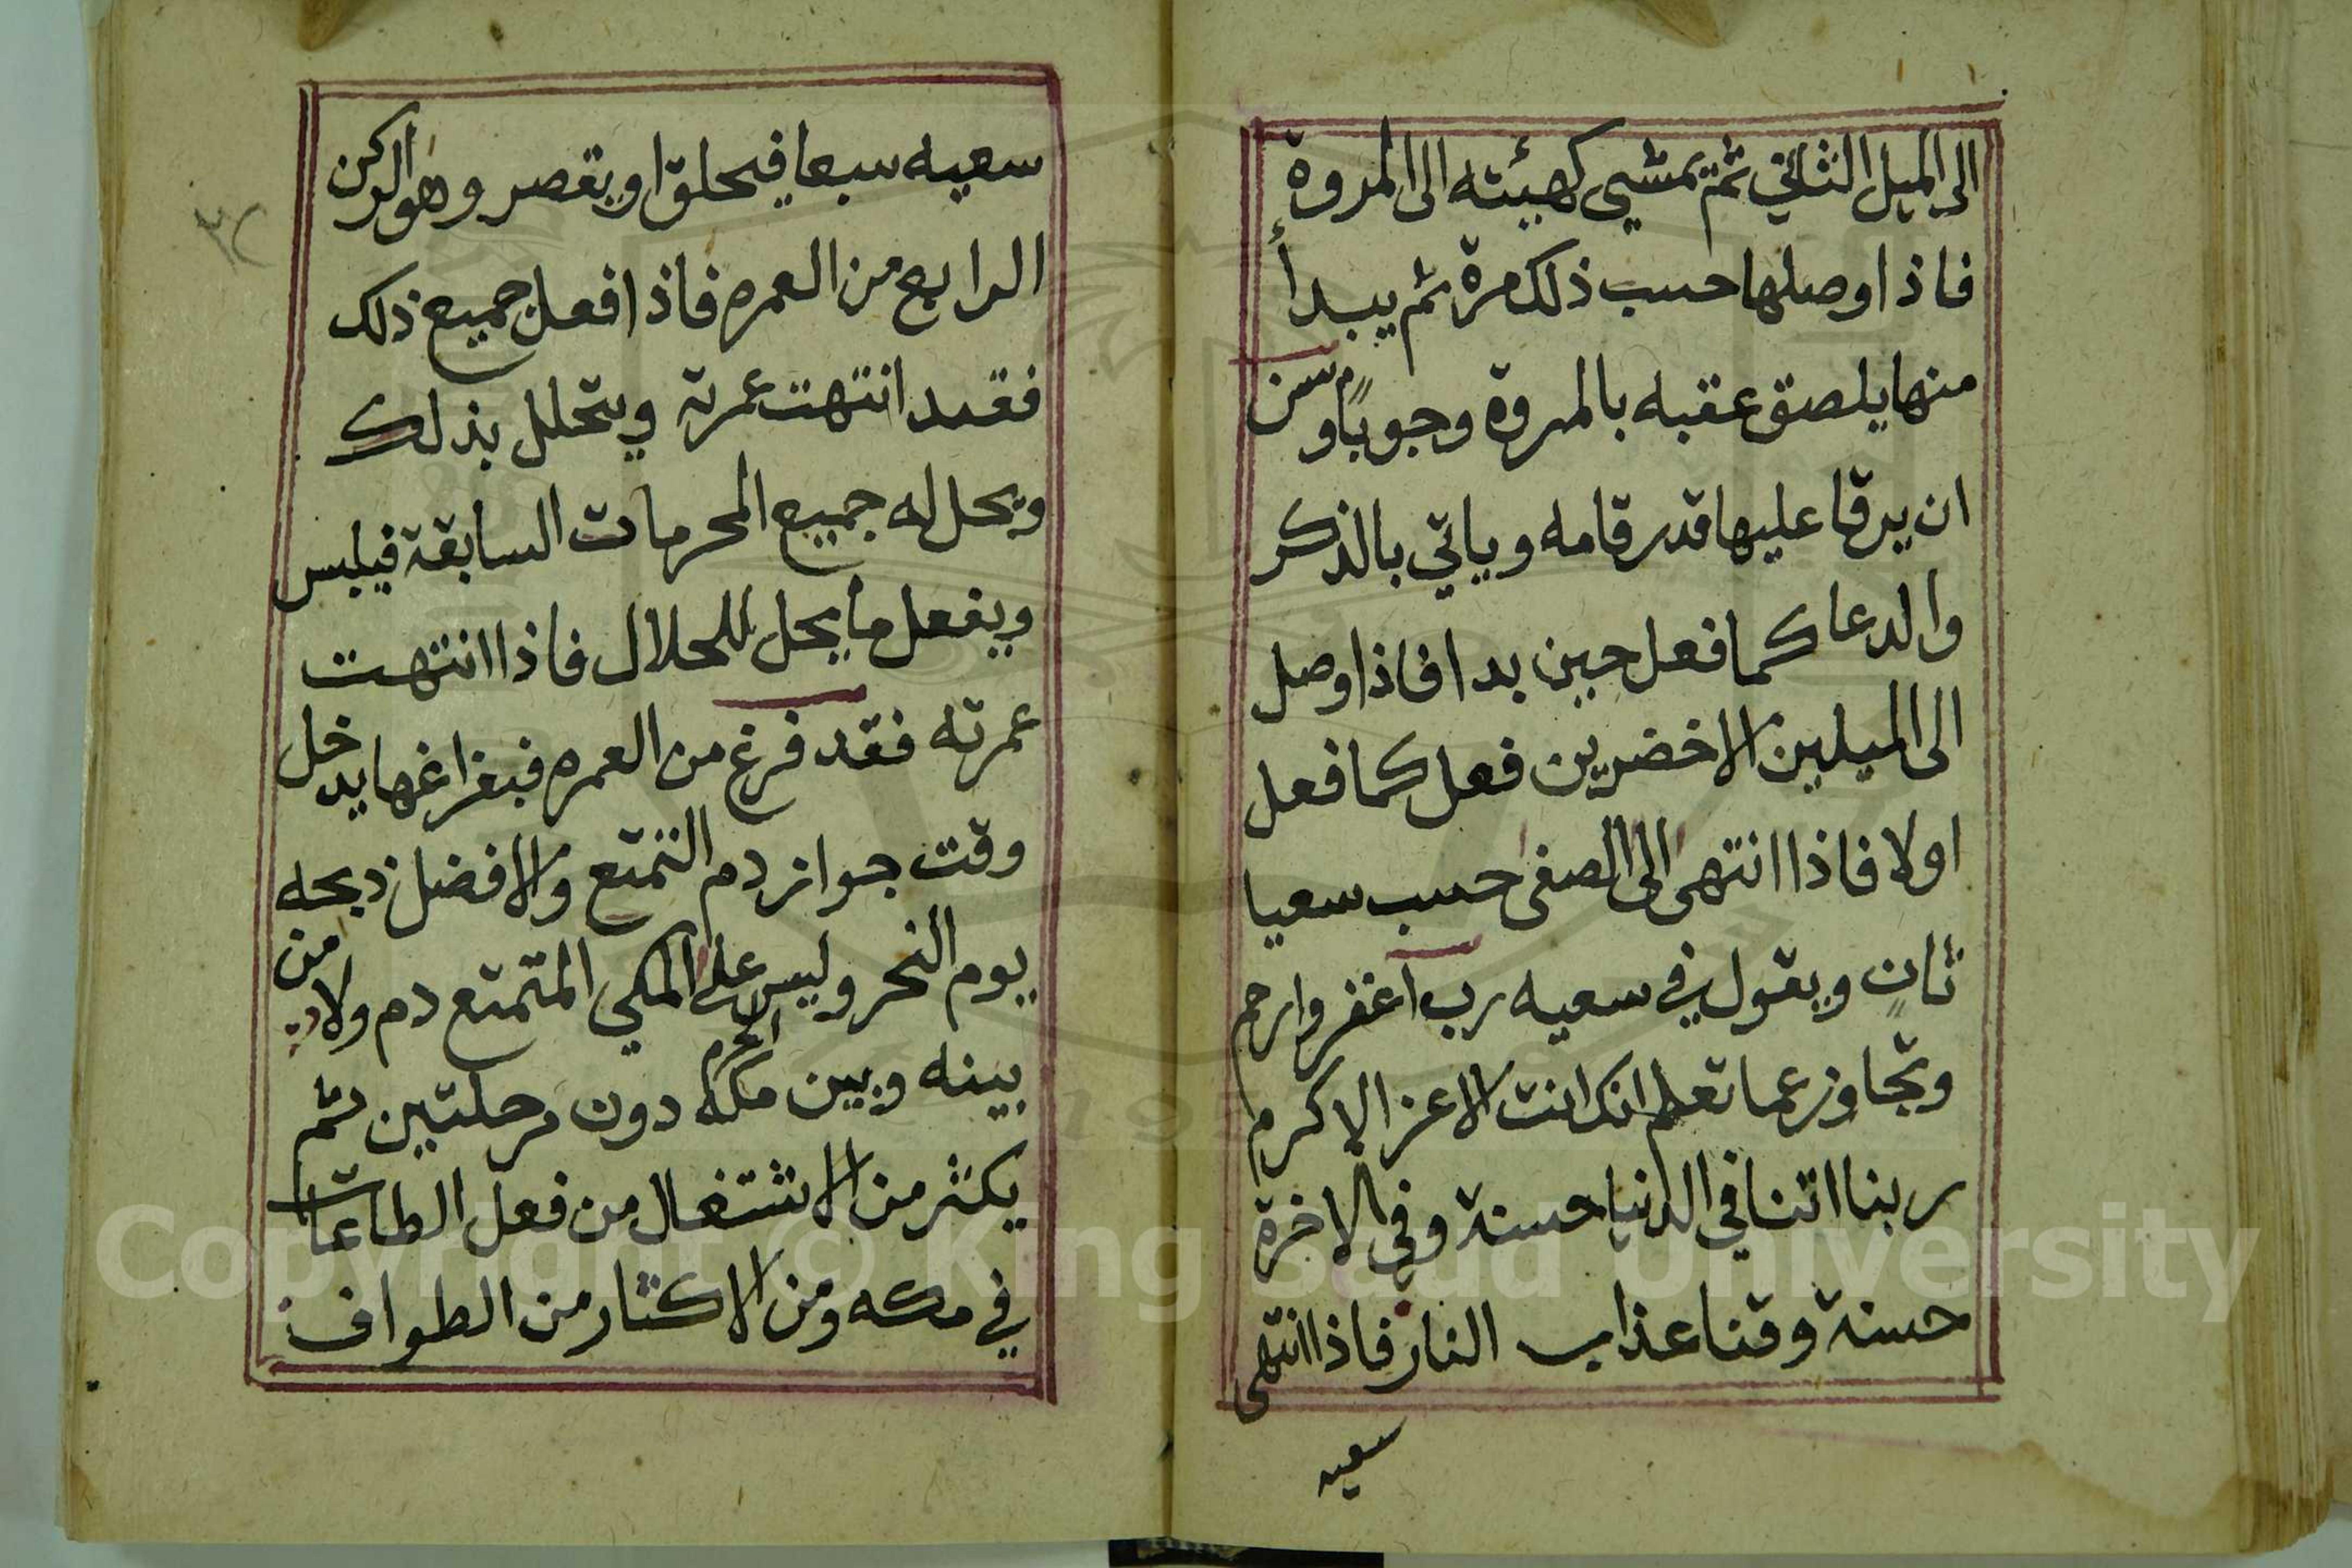 الى الميل الثاني ثم يمشي كهيئته الى المروة
فاذا وصلها حسب ذلك مرة ثم يبدأ
منها يلصق عقبه بالمروة وجوباً وسن
ان يرقا عليها قدر قامه وياتي بالذكر
والدعا كما فعل حين بدا فاذا وصل
الى الميلين الاخضرين فعل كما فعل
اولا فاذا انتهى الى الصفى حسب سعيا
ثانٍ ويقول في سعيه رب اغفر وارحم
وتجاوز عما تعلم انك انت الاعز الاكرم
ربنا اتنا في الدنيا حسنة وفي الاخرة
حسنة وقنا عذاب النار فاذا انتهى
سعيه
سعيه سبعا فيحلق او يقصر وهو الركن
الرابع من العمره فاذا فعل جميع ذلك
فقد انتهت عمرته ويتحلل بذلك
ويحل له جميع المحرمات السابقة فيلبس
ويفعل ما يحل للحلال فاذا انتهت
عمرته فقد فرغ من العمره فبفراغها يدخل
وقت جواز دم التمتع والافضل ذبحه
يوم النحر وليس على المكي المتمتع دم ولا من
بينه وبين مكه الحرم دون مرحلتين ثم
يكثر من الاشتغال من فعل الطاعات
في مكه ومن الاكثار من الطواف
٣٢
Copyright © King Saud University